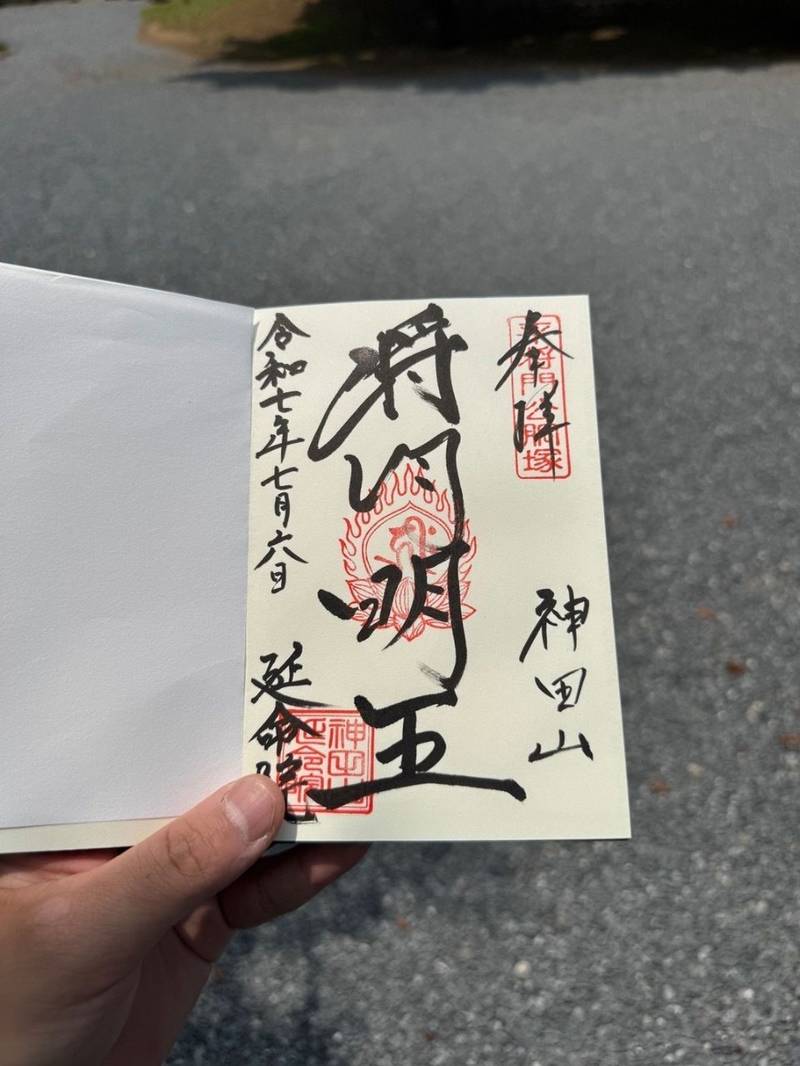 奉拝
平将門公胴塚
神田山
将門明王
令和七年七月六日
延命院
神田山延命院